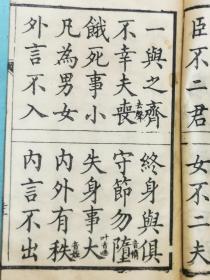 臣不二君
女不二夫
一與之齊
終身與俱
不幸夫喪去聲
守節勿墮
餓死事小
失身事大
凡為男女
內外有秩
外言不入
內言不出